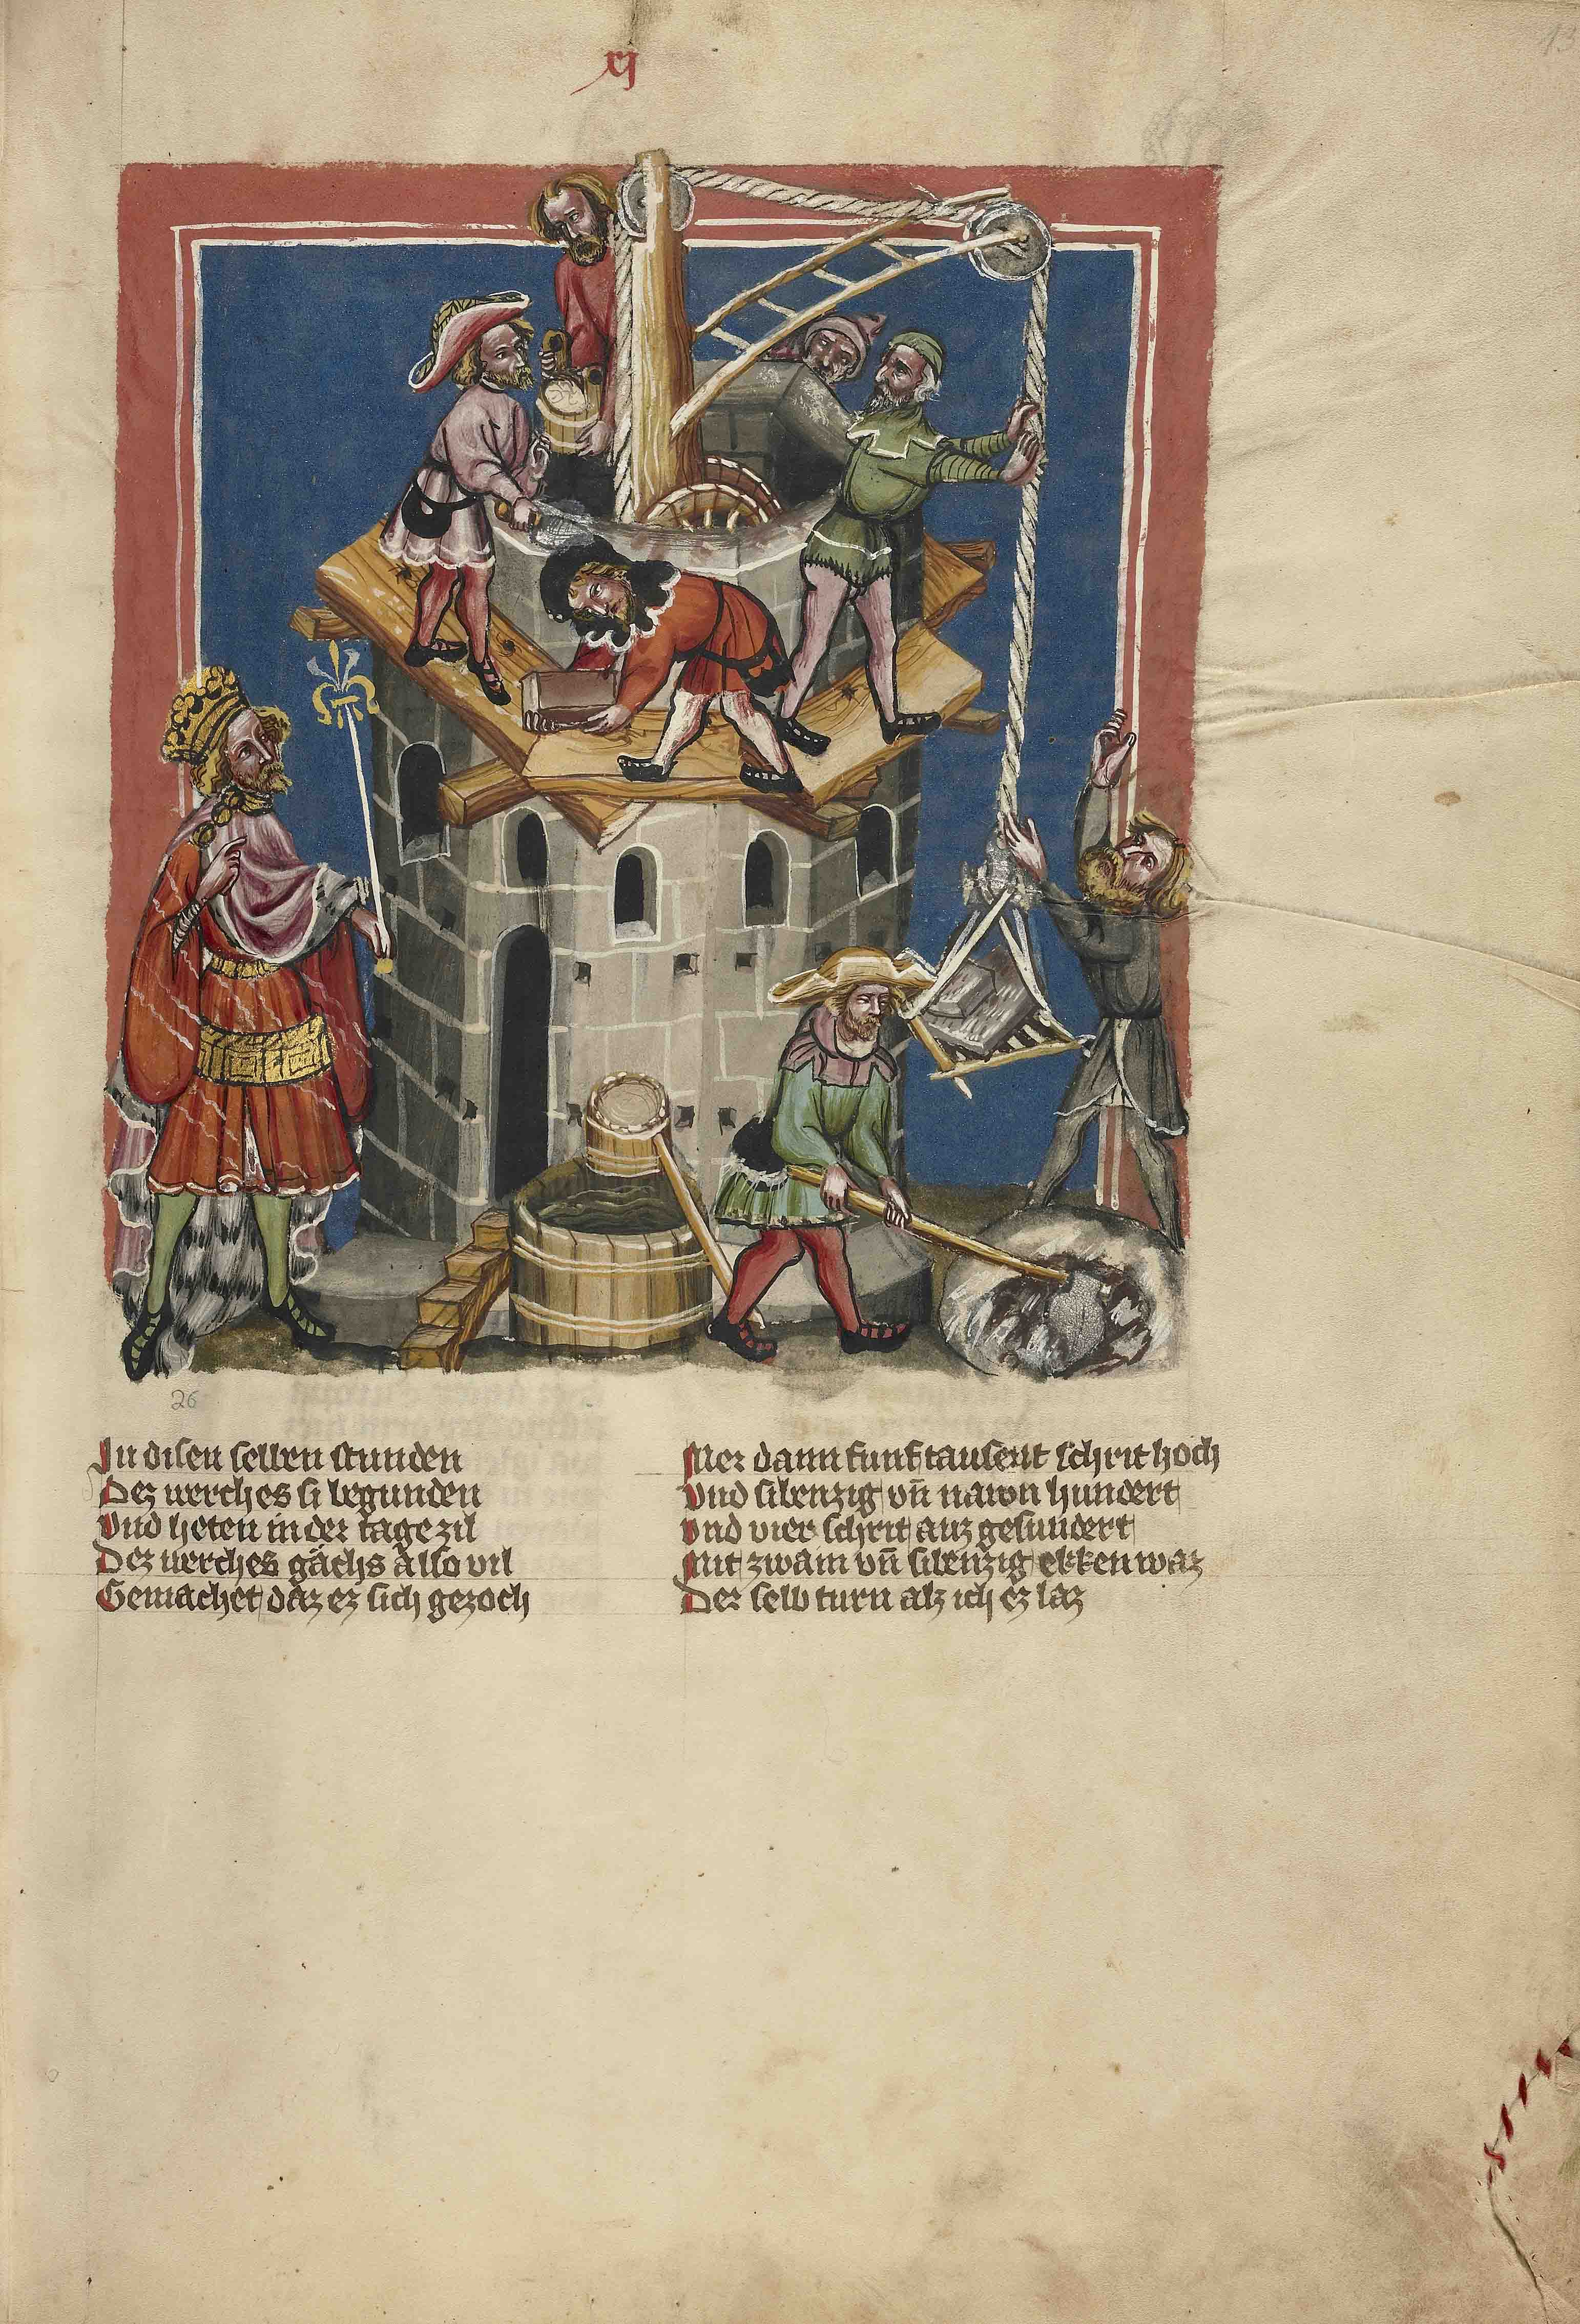 xj
13
26
In disen selben stunden
Dez werches si begunden
Vnd heten in der tage zil
Dez werches gächs also vil
Gemachet daz ez sich gezoch
Mer dann funf tausent schrit hoch
Vnd sibenzig vn̄ nawn hundert
vnd vier schrit auz gesundert
Mit zwain vn̄ sibenzig ekken waz
Der selb turn alz ich ez laz